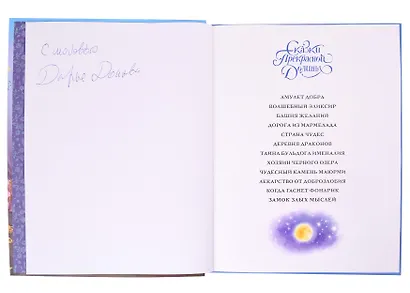 С любовью
Дарья Донцова
Сказки
Прекрасной
Долины
АМУЛЕТ ДОБРА
ВОЛШЕБНЫЙ ЭЛИКСИР
БАШНЯ ЖЕЛАНИЙ
ДОРОГА ИЗ МАРМЕЛАДА
СТРАНА ЧУДЕС
ДЕРЕВНЯ ДРАКОНОВ
ТАЙНА БУЛЬДОГА ИМЕНАЛИЯ
ХОЗЯИН ЧЕРНОГО ОЗЕРА
ЧУДЕСНЫЙ КАМЕНЬ МАЮРМИ
ЛЕКАРСТВО ОТ ДОБРОЗЛОБИЯ
КОГДА ГАСНЕТ ФОНАРИК
ЗАМОК ЗЛЫХ МЫСЛЕЙ